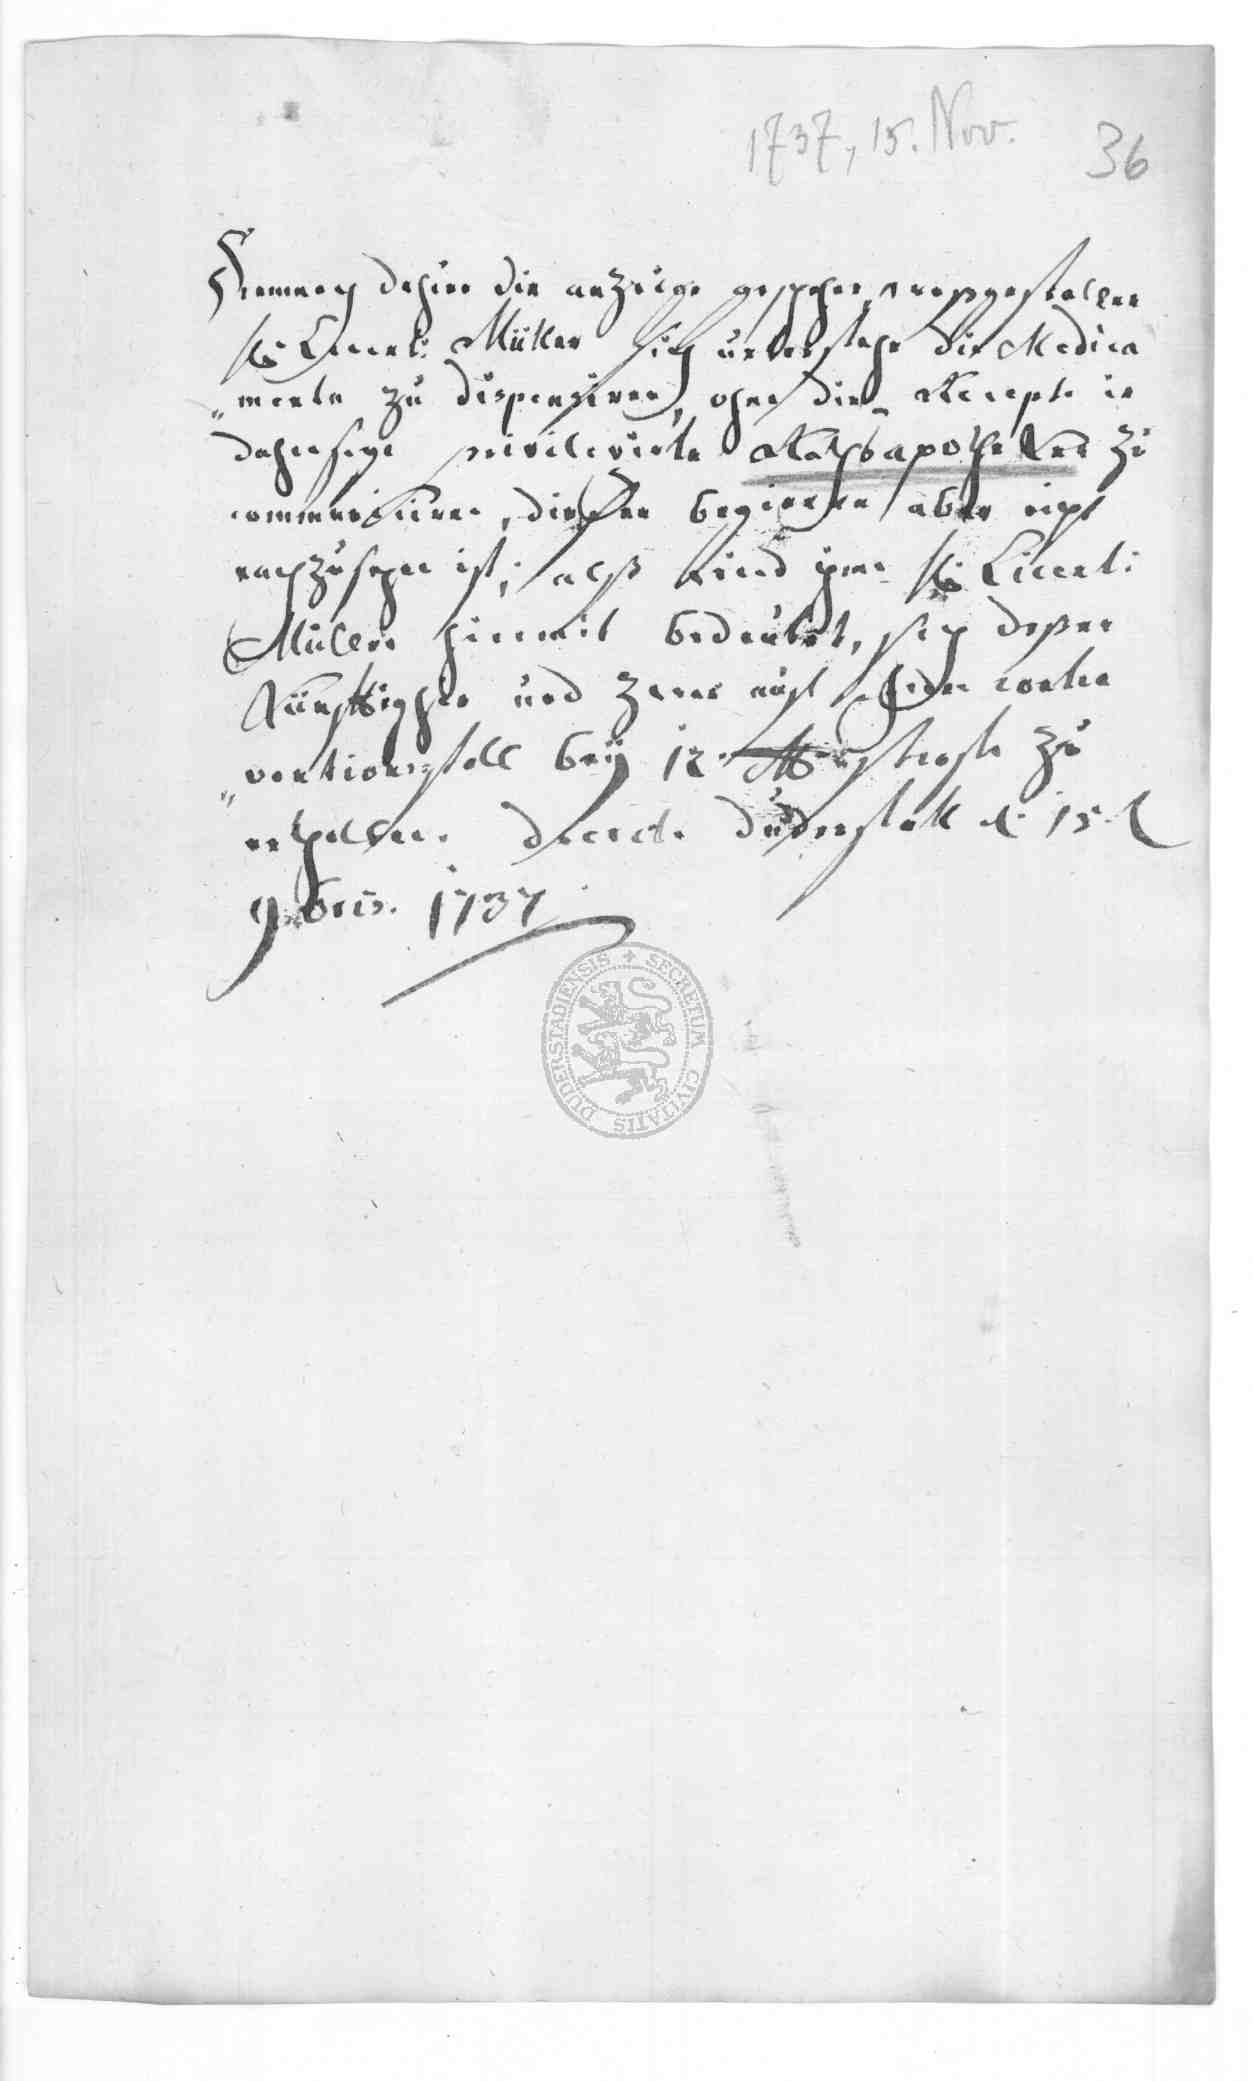 1737, 15. Nov.
36
Demnach dahier die anzeige geschehen, waßgestalten
H. Licent: Müller sich unterstehe die Medica
„mente zu dispensiren, ohne die Recepte in
dahiesige privilegirte Rathsapotheken zu
communiciren, dießen beginnen aber nicht
nachzusehen ist; alß wird ihme H. Licenti:
Müller hiermit bedeutet, sich deßen
Künfftighin und zwar auf jeden contra
„ventionsfall bey 12 straffe zu
enthalten. Decret. Duderstatt d. 15
9bris. 1737
SECRETUM CIVITATIS DUDERSTADIENSIS